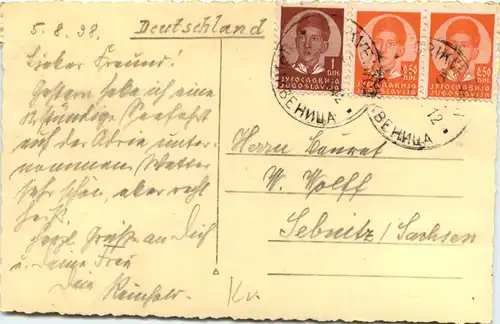 5.8.38. Deutschland
Lieber Freund!
Gestern habe ich eine
stündige Seefahrt
auf der Adria unter-
nommen. Wetter
sehr schön, aber recht
heiß.
Herzl. Grüße an Dich
u. Deine Frau
Dein Reinhold.
Herrn Baurat
W. Wolff
Sebnitz/Sachsen
Kv.
1
DIN.
ЈУГОСЛАВИЈА
JUGOSLAVIJA
0.50
DIN.
ЈУГОСЛАВИЈА
JUGOSLAVIJA
0.50
DIN.
ЈУГОСЛАВИЈА
JUGOSLAVIJA
ВЕНИЦА
12
ВЕНИЦА
12